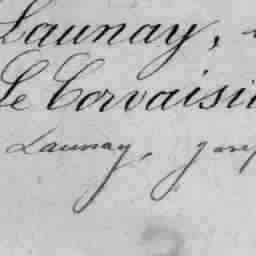 Launay,
Le Corvaisi
Launay, Jose